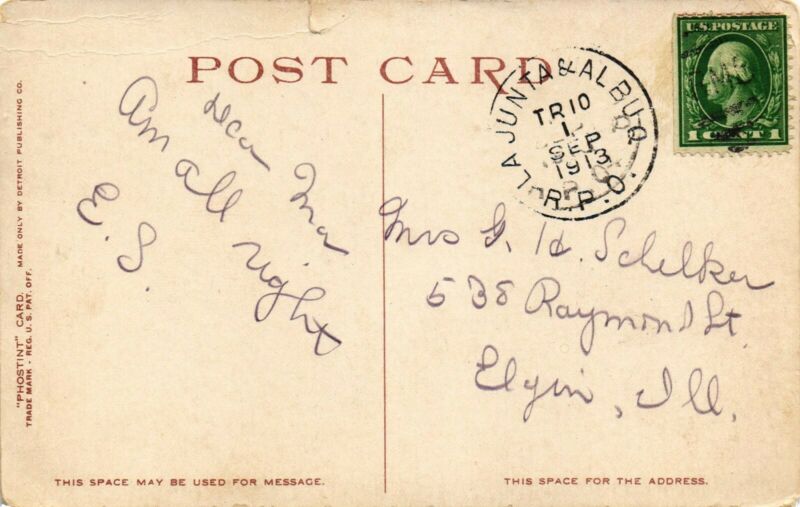 POST CARD
U.S. POSTAGE
1 CENT 1
LA JUNTA & ALBUQ.
TR 10
1 P
SEP
1913
R.P.O.
Dear Ma
Am all right
E. S.
Mrs G. H. Schelker
538 Raymond St.
Elgin, Ill.
"PHOSTINT" CARD. MADE ONLY BY DETROIT PUBLISHING CO.
TRADE MARK - REG. U.S. PAT. OFF.
THIS SPACE MAY BE USED FOR MESSAGE.
THIS SPACE FOR THE ADDRESS.